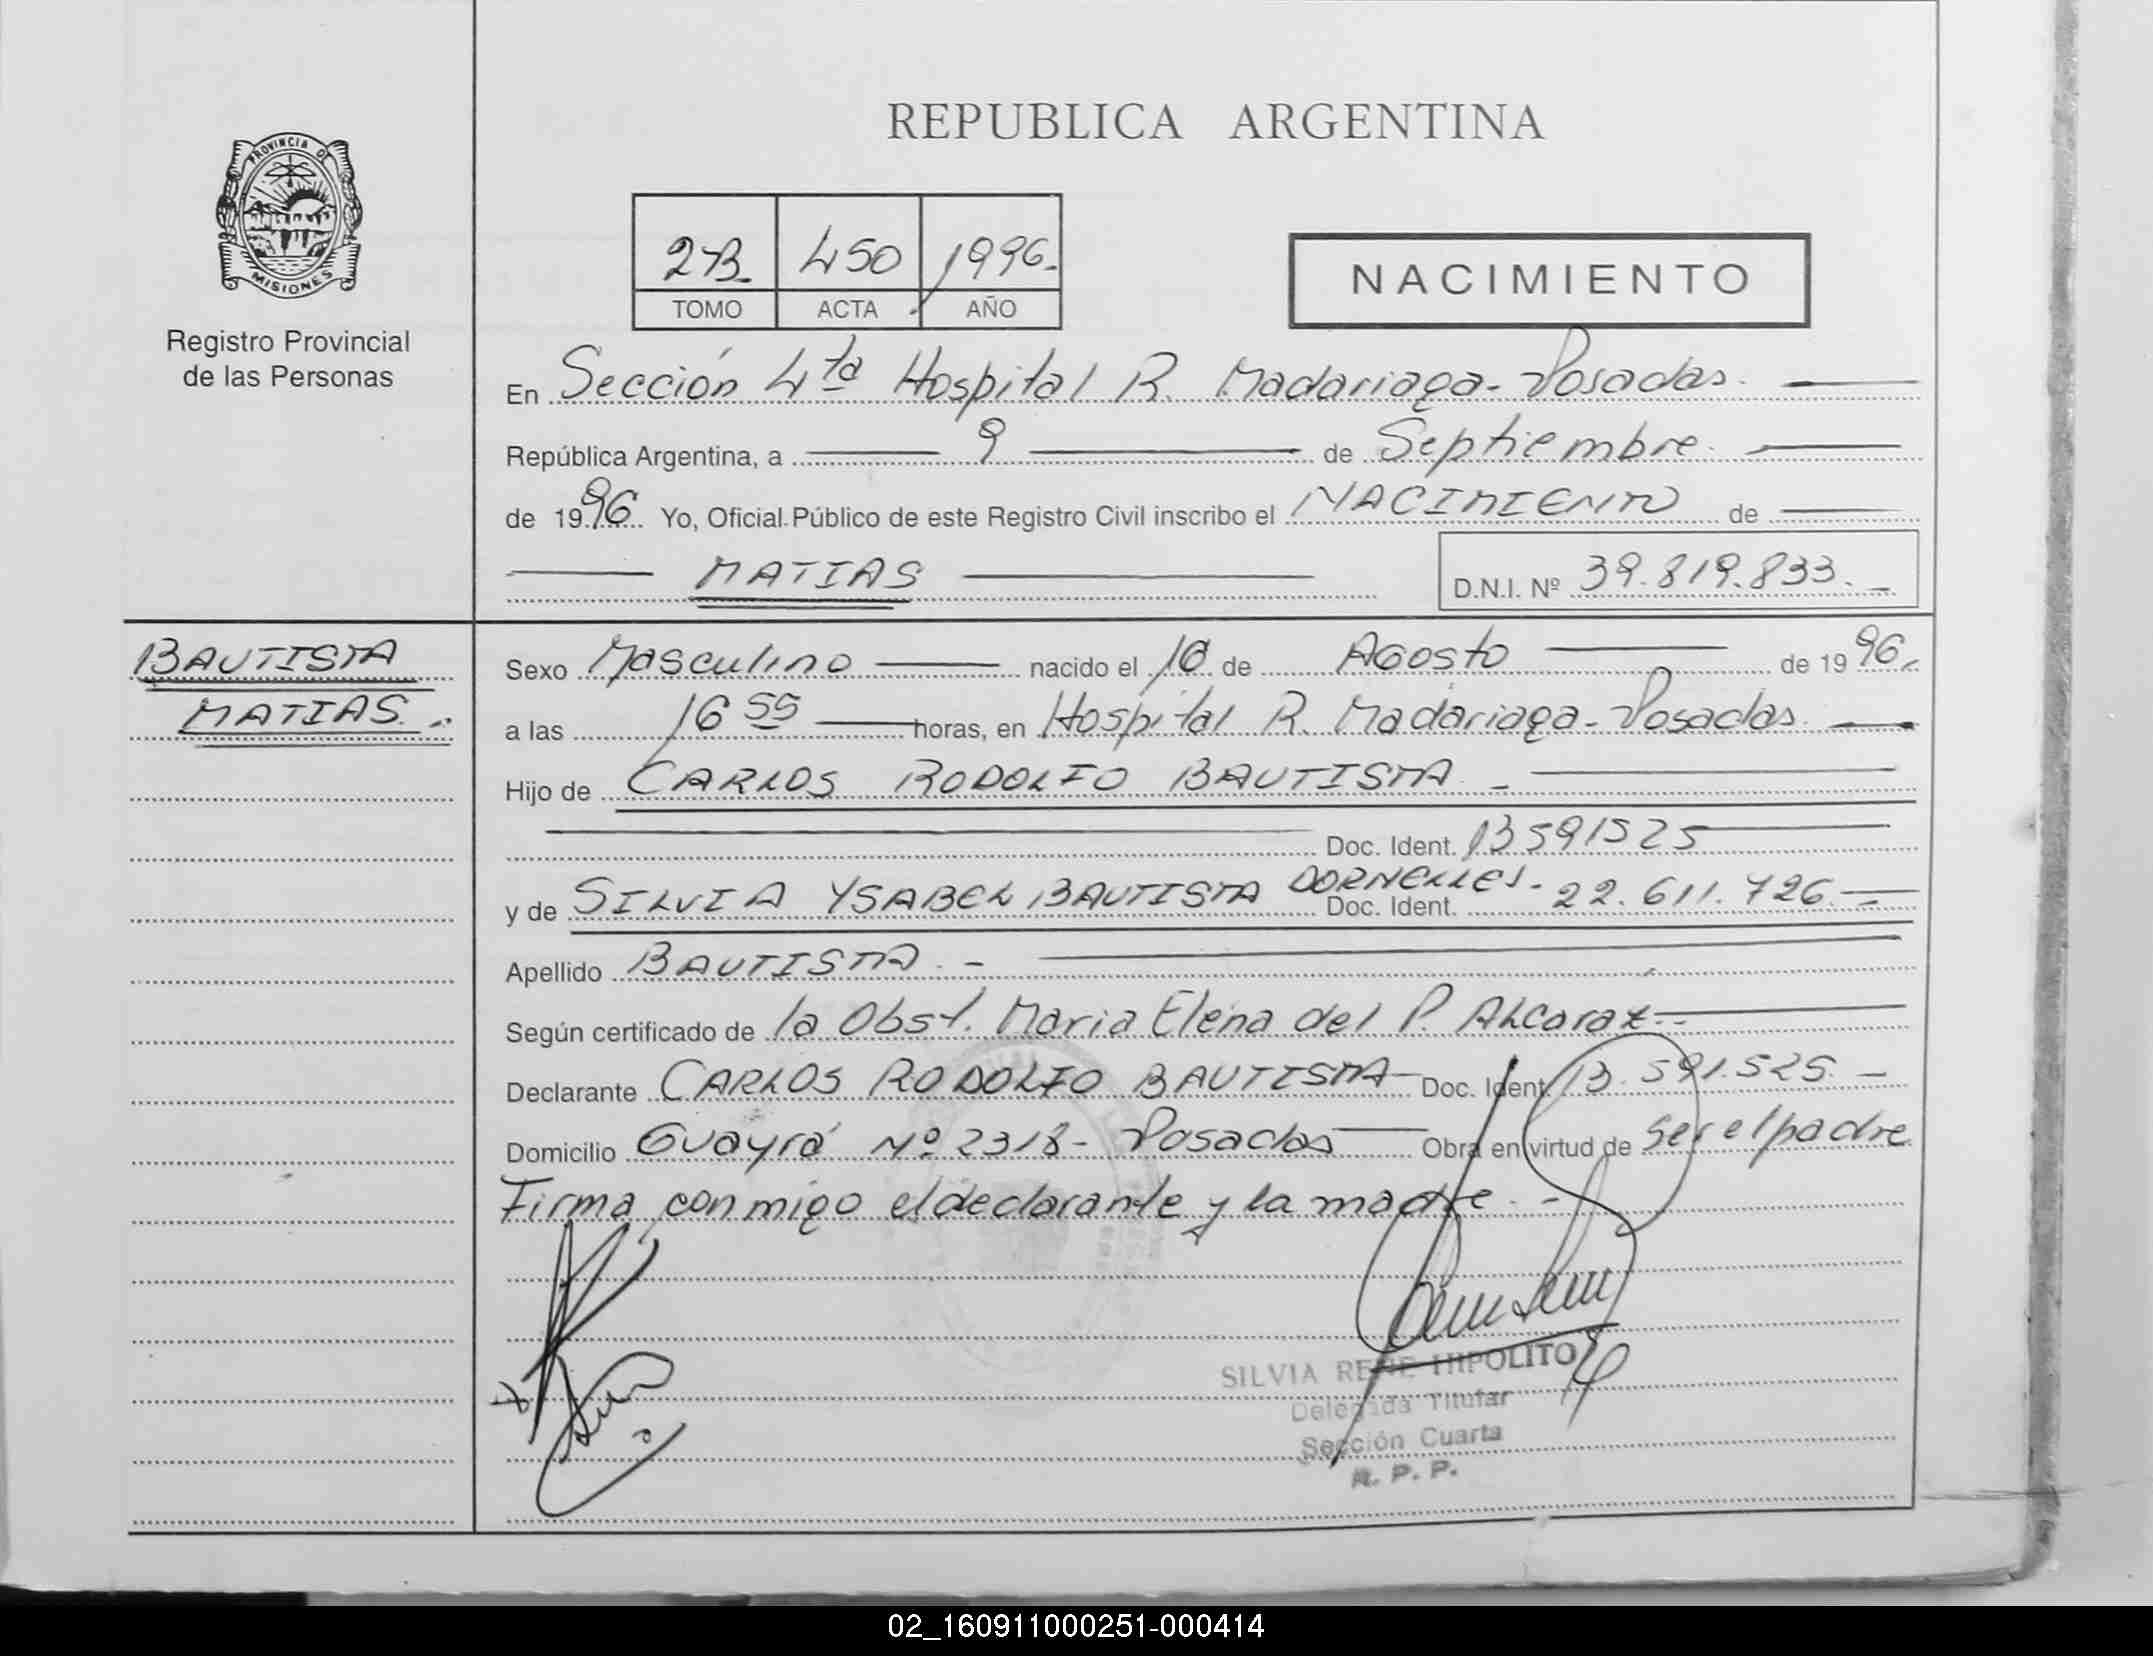 REPUBLICA ARGENTINA
PROVINCIA DE
MISIONES
Registro Provincial
de las Personas
2-B. 450 1996.-
TOMO ACTA AÑO
NACIMIENTO
En Sección 4ta Hospital R. Madariaga - Posadas.
República Argentina, a 9 de Septiembre
de 1996 Yo, Oficial Público de este Registro Civil inscribo el NACIMIENTO de
MATIAS D.N.I. Nº 39.819.833.-
BAUTISTA
MATIAS.
Sexo Masculino nacido el 10 de Agosto de 1996.
a las 16 55 horas, en Hospital R. Madariaga - Posadas.
Hijo de CARLOS RODOLFO BAUTISTA -
Doc. Ident. 13591525
y de SILVIA YSABEL BAUTISTA DORNELLES - Doc. Ident. 22.611.726.-
Apellido BAUTISTA. -
Según certificado de la Obst. Maria Elena del P. Alcaraz.-
Declarante CARLOS RODOLFO BAUTISTA Doc. Ident. 13.591.525. -
Domicilio Guayrá Nº 2318 - Posadas Obra en virtud de ser el padre
Firma conmigo el declarante y la madre. -
SILVIA RENE HIPOLITO
Delegada Titular
Sección Cuarta
R. P. P.
02_160911000251-000414